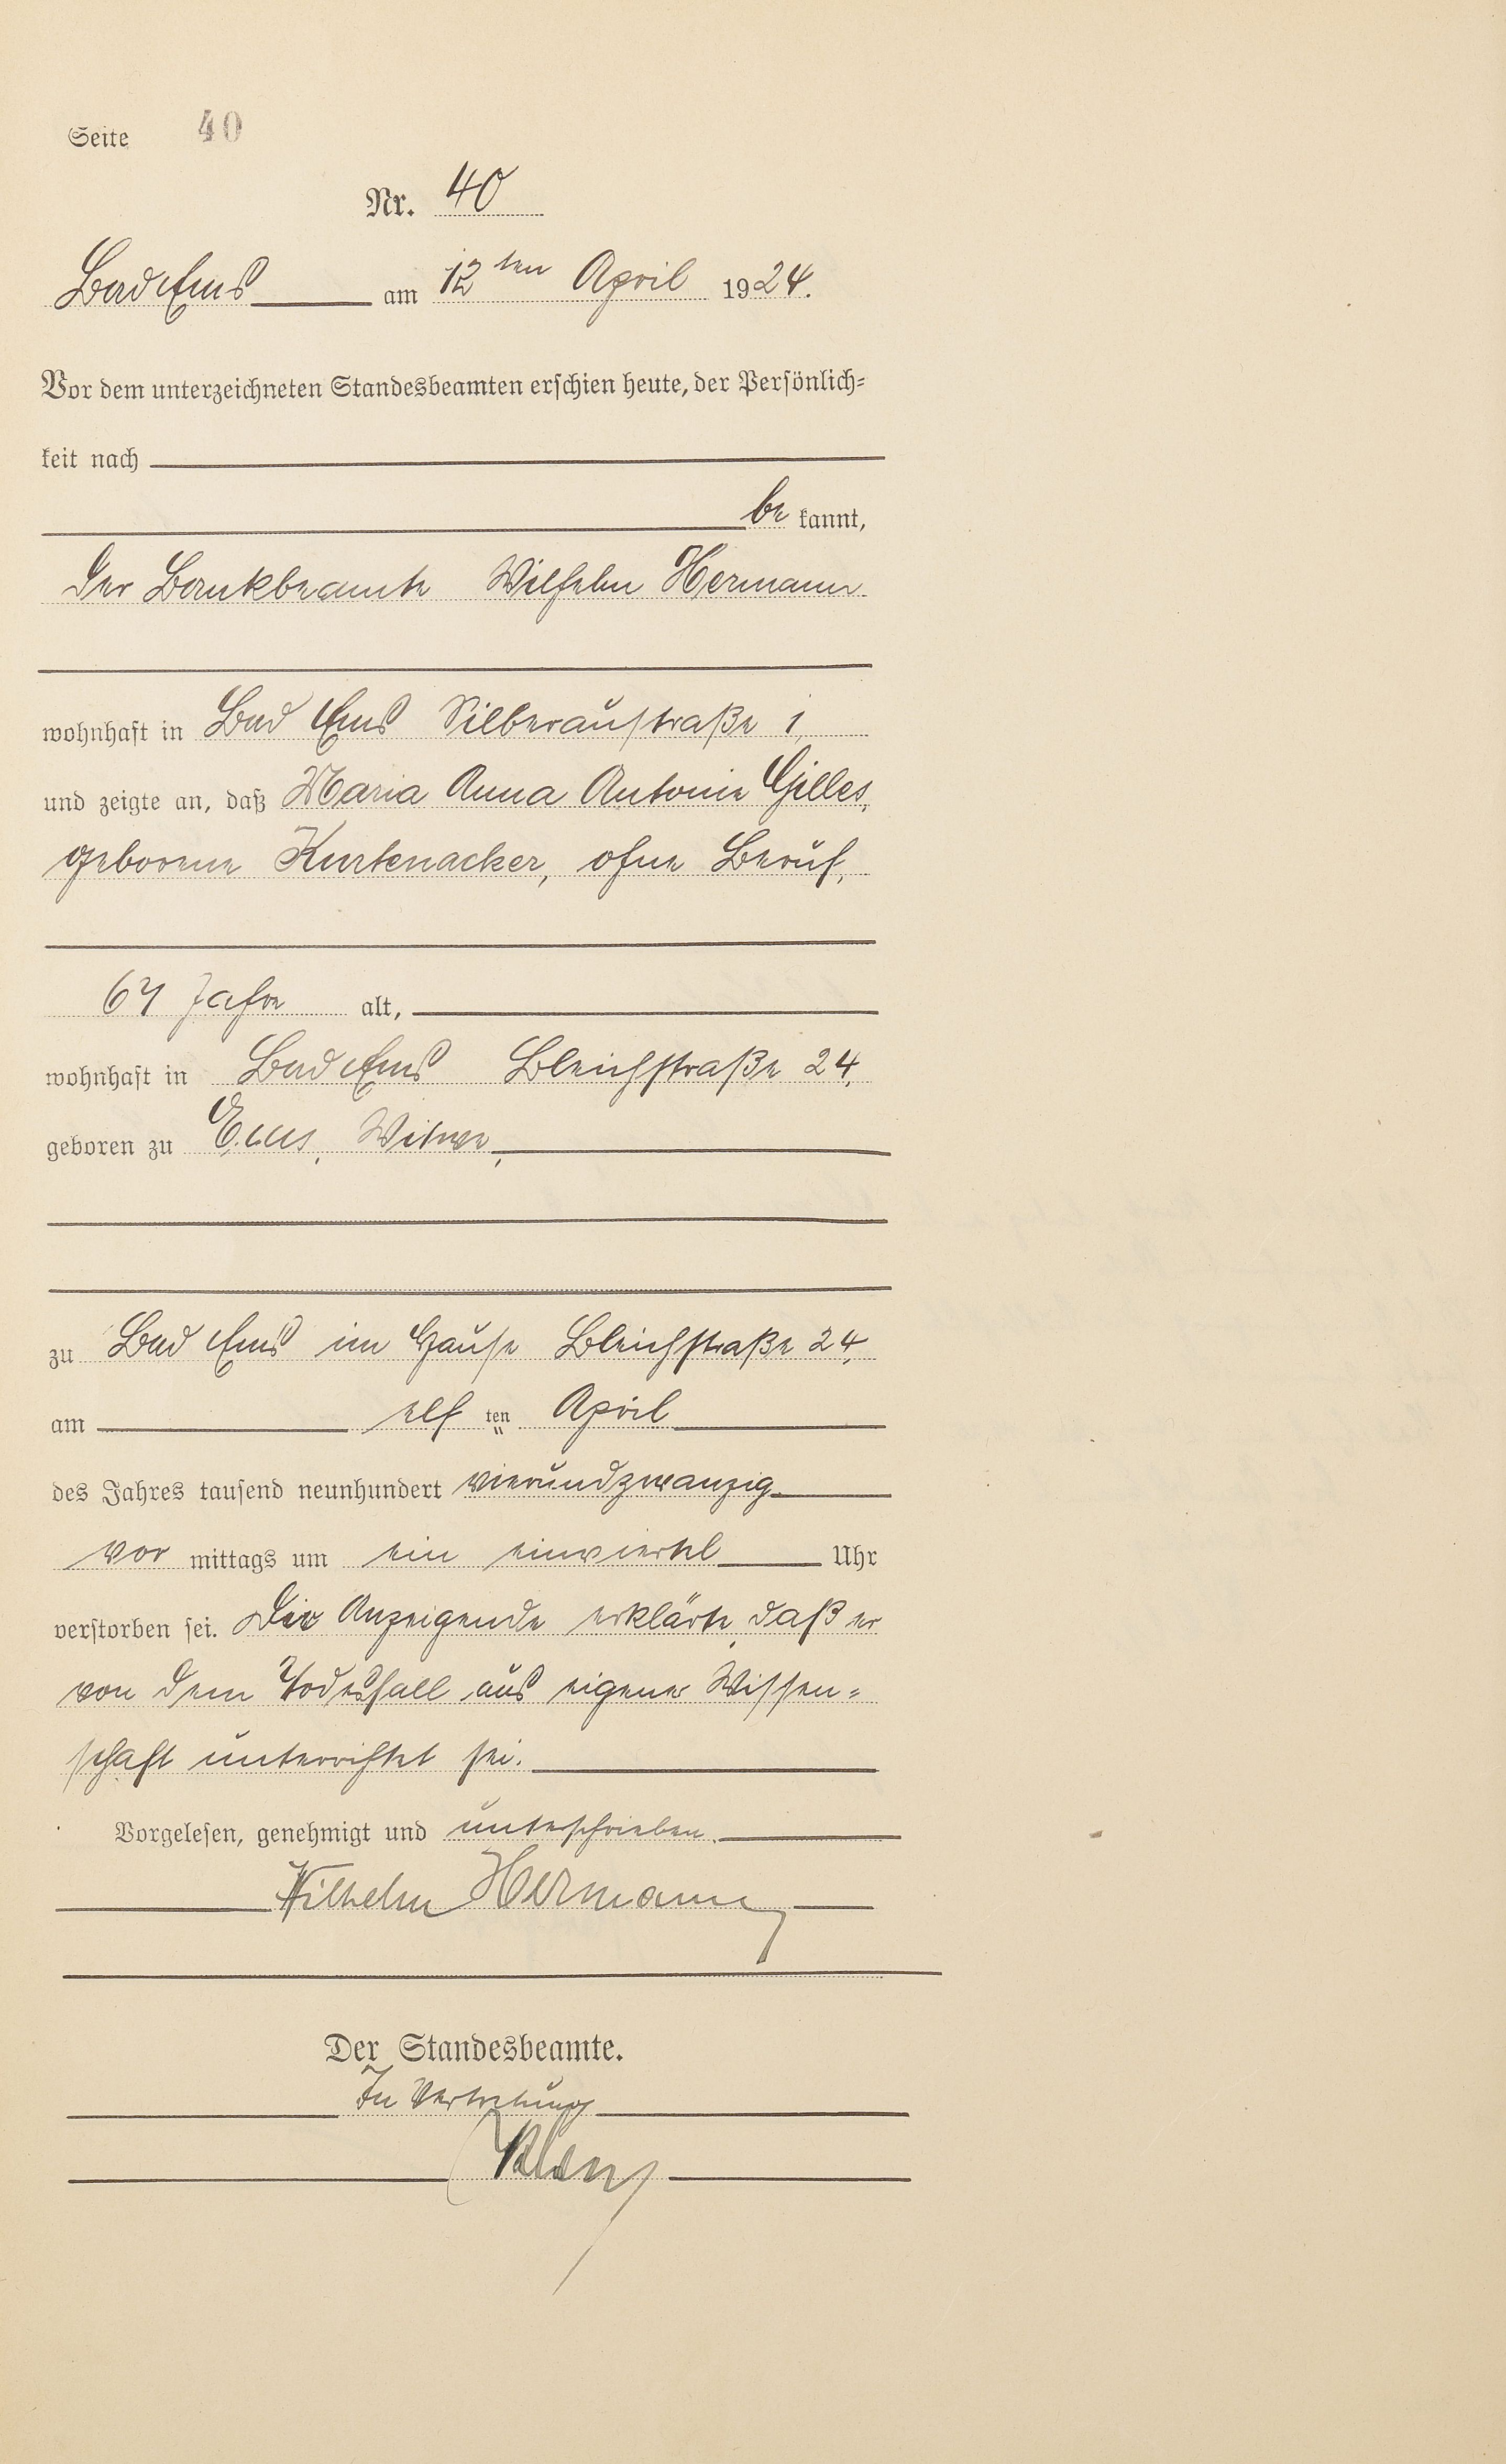 Seite 40
Nr. 40
Bad Ems am 12ten April 1924.
Vor dem unterzeichneten Standesbeamten erschien heute, der Persönlich-
keit nach
be kannt,
der Bankbeamte Wilhelm Hermann
wohnhaft in Bad Ems Silberaustraße 1,
und zeigte an, daß Maria Anna Antonie Gilles,
geborene Kurtenacker, ohne Beruf,
64 Jahre alt,
wohnhaft in Bad Ems Bleichstraße 24,
geboren zu Ems, Witwe,
zu Bad Ems im Hause Bleichstraße 24,
am elf ten April
des Jahres tausend neunhundert vierundzwanzig
vor mittags um ein einviertel Uhr
verstorben sei. Der Anzeigende erklärte, daß er
von dem Todesfall aus eigener Wissen-
schaft unterrichtet sei.
Vorgelesen, genehmigt und unterschrieben.
Wilhelm Hermann
Der Standesbeamte.
In Vertretung